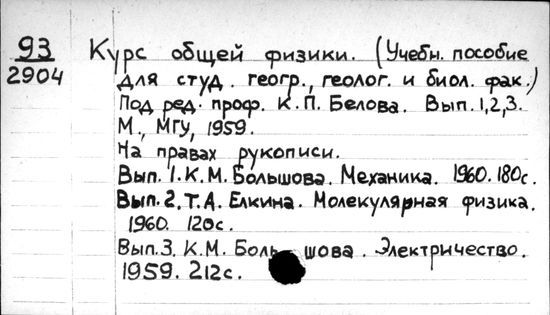 93
2904
Курс общей физики. (Учебн. пособие
для студ. геогр., геолог. и биол. фак.)
Под ред. проф. К.П. Белова. Вып. 1,2,3.
М., МГУ, 1959.
На правах рукописи.
Вып. 1. К.М. Большова. Механика. 1960. 180с.
Вып. 2. Т.А. Елкина. Молекулярная физика.
1960. 120с.
Вып. 3. К.М. Боль- шова. Электричество.
1959. 212с.